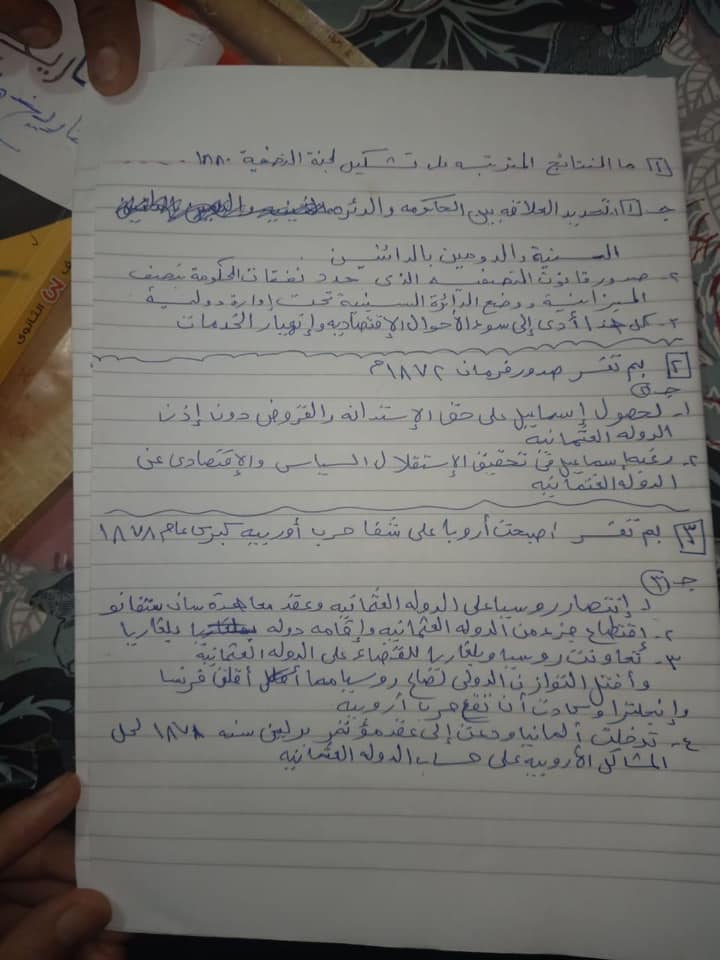 تاريخ
[1] ما النتائج المترتبه على تشكيل لجنة التصفية ١٨٨٠
جـ [1] ١. تحديد العلاقه بين الحكومه والدائره
السنية والدومين بالدائنين
٢- صدور قانون التصفيه الذى حدد نفقات الحكومة بنصف
الميزانية ووضع الدائرة السنية تحت إدارة دولية
٣- كل هذا أدى إلى سوء الأحوال الإقتصاديه وإنهيار الخدمات
[٢] بم تفسر صدور فرمان ١٨٧٢م
جـ (٢)
١- لحصول إسماعيل على حق الإستدانه والقروض دون إذن
الدوله العثمانية
٢- رغبه إسماعيل فى تحقيق الإستقلال السياسى والإقتصادى عن
الدوله العثمانيه
[٣] بم تفسر اصبحت أروبا على شفا حرب أوربيه كبرى عام ١٨٧٨
جـ (٣)
١. إنتصار روسيا على الدوله العثمانيه وعقد معاهدة سان ستفانو
٢- إقتطاع جزء من الدوله العثمانيه وإقامه دوله بلغاريا
٣- تعاونت روسيا وبلغاريا للقضاء على الدوله العثمانية
وأختل التوازن الدولى لصالح روسيا مما أقلق فرنسا
وإنجلترا وكادت أن تقع حربا أروبية
٤- تدخلت ألمانيا ودعت إلى عقد مؤتمر برلين سنه ١٨٧٨ لحل
المشاكل الأروبيه على حساب الدوله العثمانيه
الثانوى